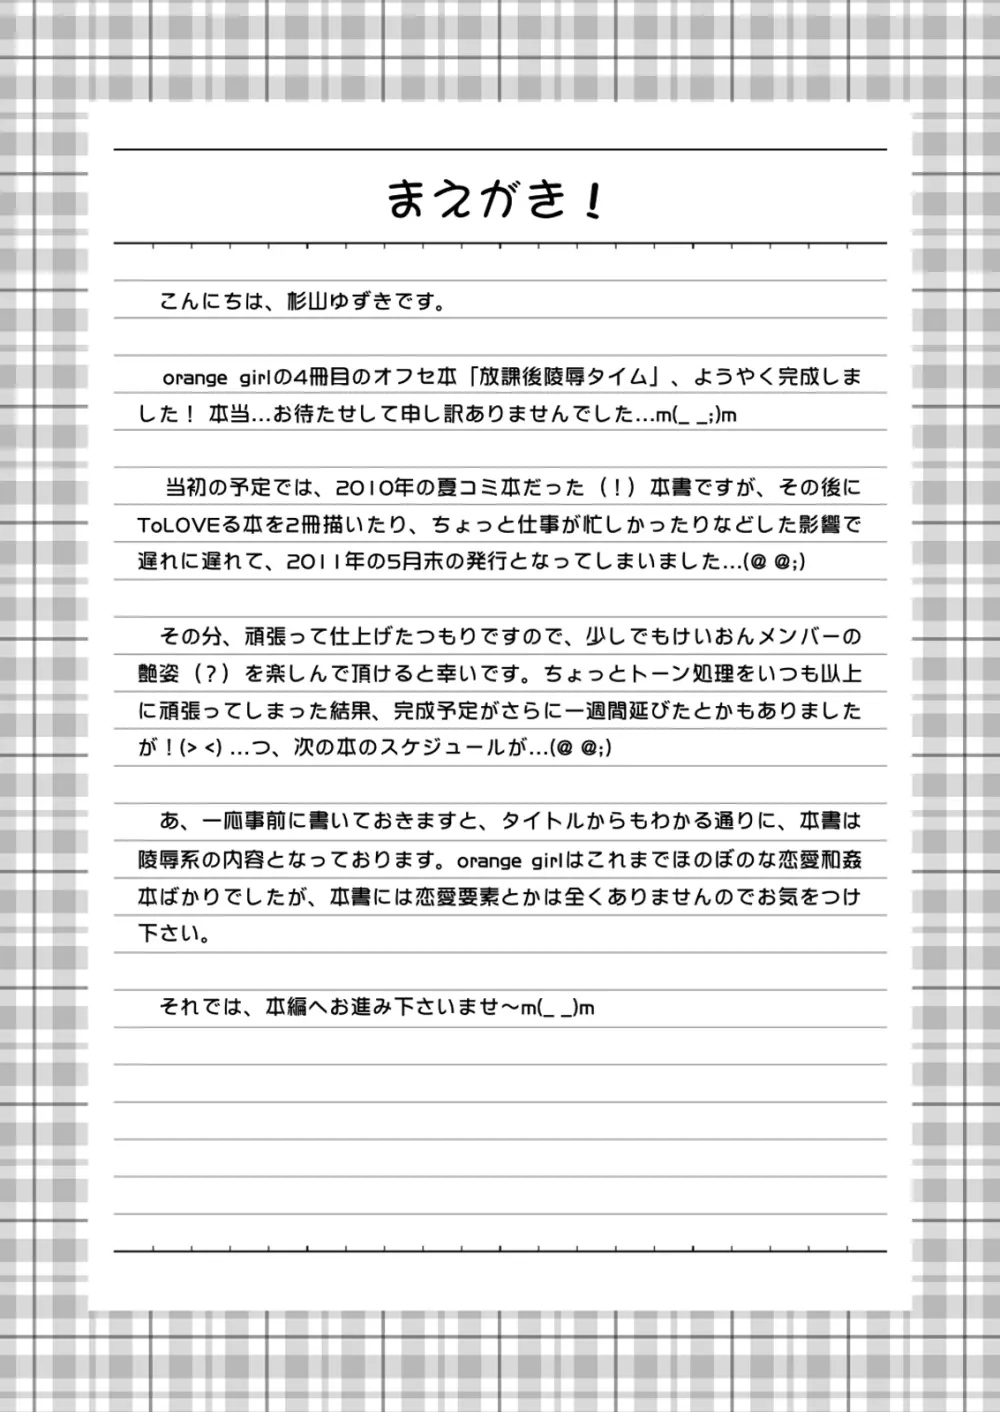 まえがき！
こんにちは、杉山ゆずきです。
orange girlの4冊目のオフセ本「放課後陵辱タイム」、ようやく完成しま
した！ 本当…お待たせして申し訳ありませんでした…m(_ _;)m
当初の予定では、2010年の夏コミ本だった（！）本書ですが、その後に
ToLOVEる本を2冊描いたり、ちょっと仕事が忙しかったりなどした影響で
遅れに遅れて、2011年の5月末の発行となってしまいました…(@ @;)
その分、頑張って仕上げたつもりですので、少しでもけいおんメンバーの
艶姿（？）を楽しんで頂けると幸いです。ちょっとトーン処理をいつも以上
に頑張ってしまった結果、完成予定がさらに一週間延びたとかもありました
が！(> <) …つ、次の本のスケジュールが…(@ @;)
あ、一応事前に書いておきますと、タイトルからもわかる通りに、本書は
陵辱系の内容となっております。orange girlはこれまでほのぼのな恋愛和姦
本ばかりでしたが、本書には恋愛要素とかは全くありませんのでお気をつけ
下さい。
それでは、本編へお進み下さいませ～m(_ _)m